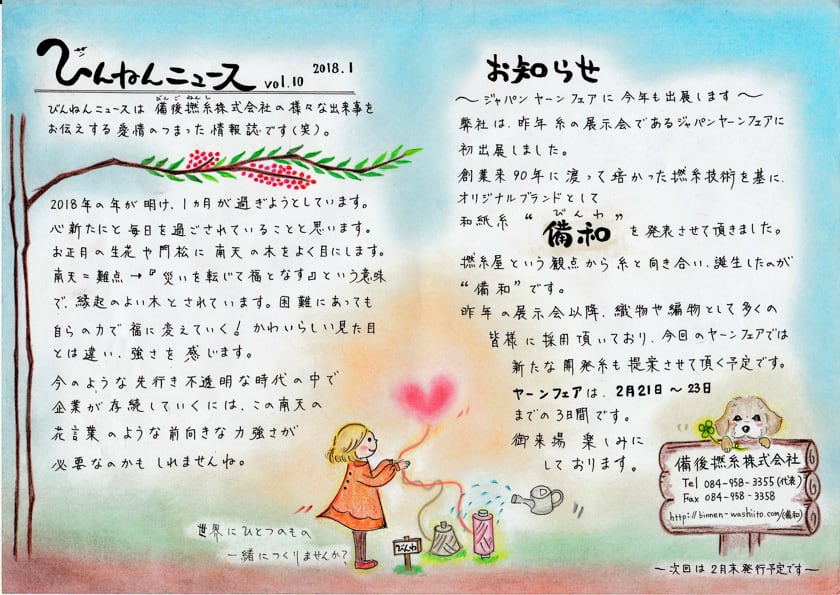 びんねんニュース vol.10 2018.1
びんねんニュースは 備後撚糸株式会社の様々な出来事を
お伝えする愛情のつまった情報誌です(笑)。
2018年の年が明け、1ヵ月が過ぎようとしています。
心新たにと毎日を過ごされていることと思います。
お正月の生花や門松に南天の木をよく目にします。
南天=難点→『災いを転じて福となす』という意味
で、縁起のよい木とされています。困難にあっても
自らの力で福に変えていく!かわいらしい見た目
とは違い、強さを感じます。
今のような先行き不透明な時代の中で
企業が存続していくには、この南天の
花言葉のような前向きな力強さが
必要なのかもしれませんね。
世界にひとつのもの
一緒につくりませんか?
びんわ
お知らせ
〜ジャパンヤーンフェアに今年も出展します〜
弊社は、昨年糸の展示会であるジャパンヤーンフェアに
初出展しました。
創業来90年に渡って培かった撚糸技術を基に、
オリジナルブランドとして
和紙糸 "備和" を発表させて頂きました。
びんわ
撚糸屋という観点から糸と向き合い、誕生したのが
"備和"です。
昨年の展示会以降、織物や編物として多くの
皆様に採用頂いており、今回のヤーンフェアでは
新たな開発糸も提案させて頂く予定です。
ヤーンフェアは、2月21日〜23日
までの3日間です。
御来場楽しみに
しております。
備後撚糸株式会社
Tel 084-958-3355(代表)
Fax 084-958-3358
http://binnen-washiito.com/(備和)
〜次回は2月末発行予定です〜